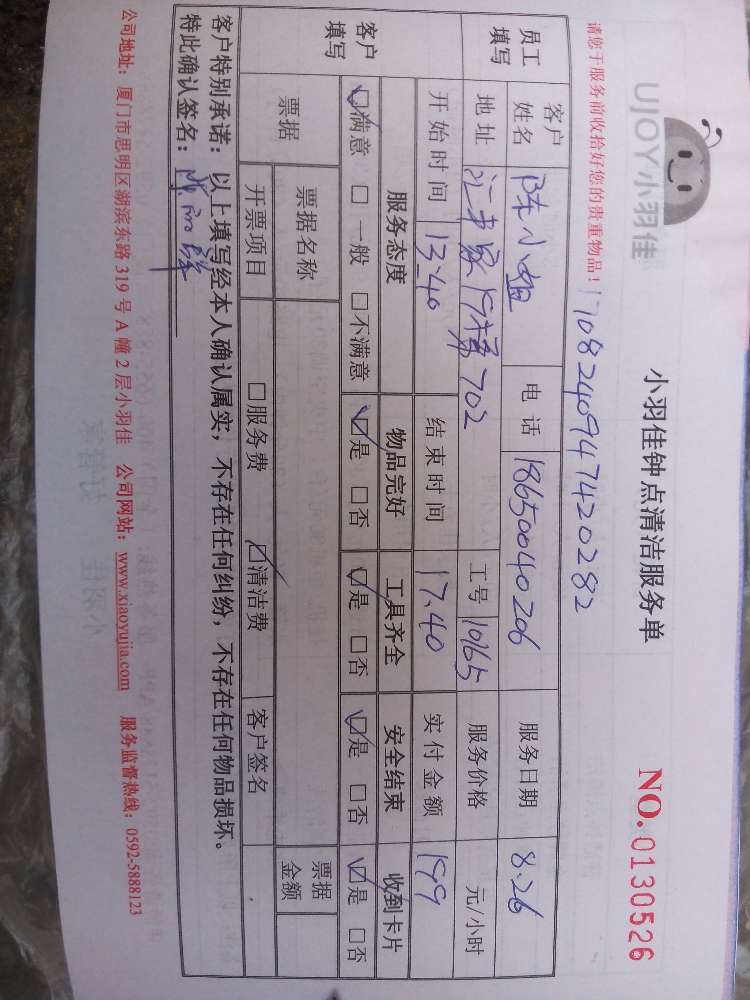 UJOY小羽佳
小羽佳钟点清洁服务单
NO. 0130526
请您于服务前收拾好您的贵重物品！ 170824094747420282
员工填写 客户姓名 陈小姐 电话 18650040206 服务日期 8.26
地址 19楼702 工号 10165 服务价格 元/小时
开始时间 13.40 结束时间 17.40 实付金额 199
客户填写 服务态度 物品完好 工具齐全 安全结束 收到卡片
☑满意 □一般 □不满意 ☑是 □否 ☑是 □否 ☑是 □否 ☑是 □否
票据 票据名称 票据金额
开票项目 □服务费 ☑清洁费 客户签名
客户特别承诺：以上填写经本人确认属实，不存在任何纠纷，不存在任何物品损坏。
特此确认签名：
公司地址：厦门市思明区湖滨东路 319 号 A 幢 2 层小羽佳 公司网站：www.xiaoyujia.com 服务监督热线：0592-5888123